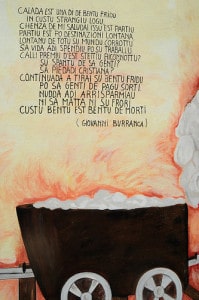 CALADA EST UNA DÌ DE BENTU FRIDU
IN CUSTU STRANGIU LOGU
CHENZA DE MI SALUDAI ISSU EST PARTIU
PARTIU EST PO DESTINAZIONI LONTANA
LONTANU DE TOTU SU MUNDU CORROTTU
SA VIDA ADI SPENDIU PO SU TRABALLU
CALI PREMIU D'EST STETIU
SU SPANTU DE SA GENTI?
SA PIEDADI CRISTIANA?
CONTINUADA A TIRAI SU BENTU FRIDU
PO SA GENTI DE PAGU SORTI
NUDDA ADI ARRISPARMIAU
NI SA MATTA NI SU FRORI
CUSTU BENTU EST BENTU DE MORTI
(GIOVANNI BURRANCA)